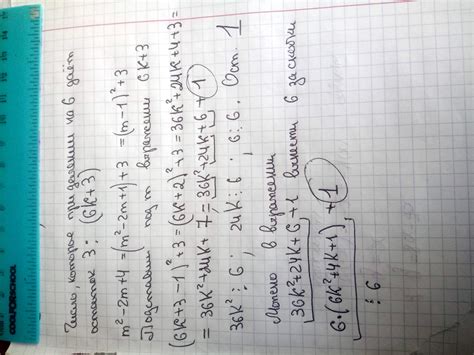 Число, которое при делении на 6 даёт
остаток 3: (6k+3)
m²-2m+4 = (m²-2m+1)+3 = (m-1)²+3
Подставим под m выражение 6k+3
(6k+3-1)²+3 = (6k+2)²+3 = 36k²+24k+4+3 =
= 36k²+24k+7 = 36k²+24k+6+1
36k² ⋮ 6; 24k ⋮ 6; 6 ⋮ 6. Ост. 1
Можно в выражении
36k²+24k+6+1 вынести 6 за скобки
6·(6k²+4k+1)+1
⋮ 6
COOLFORSCHOOL